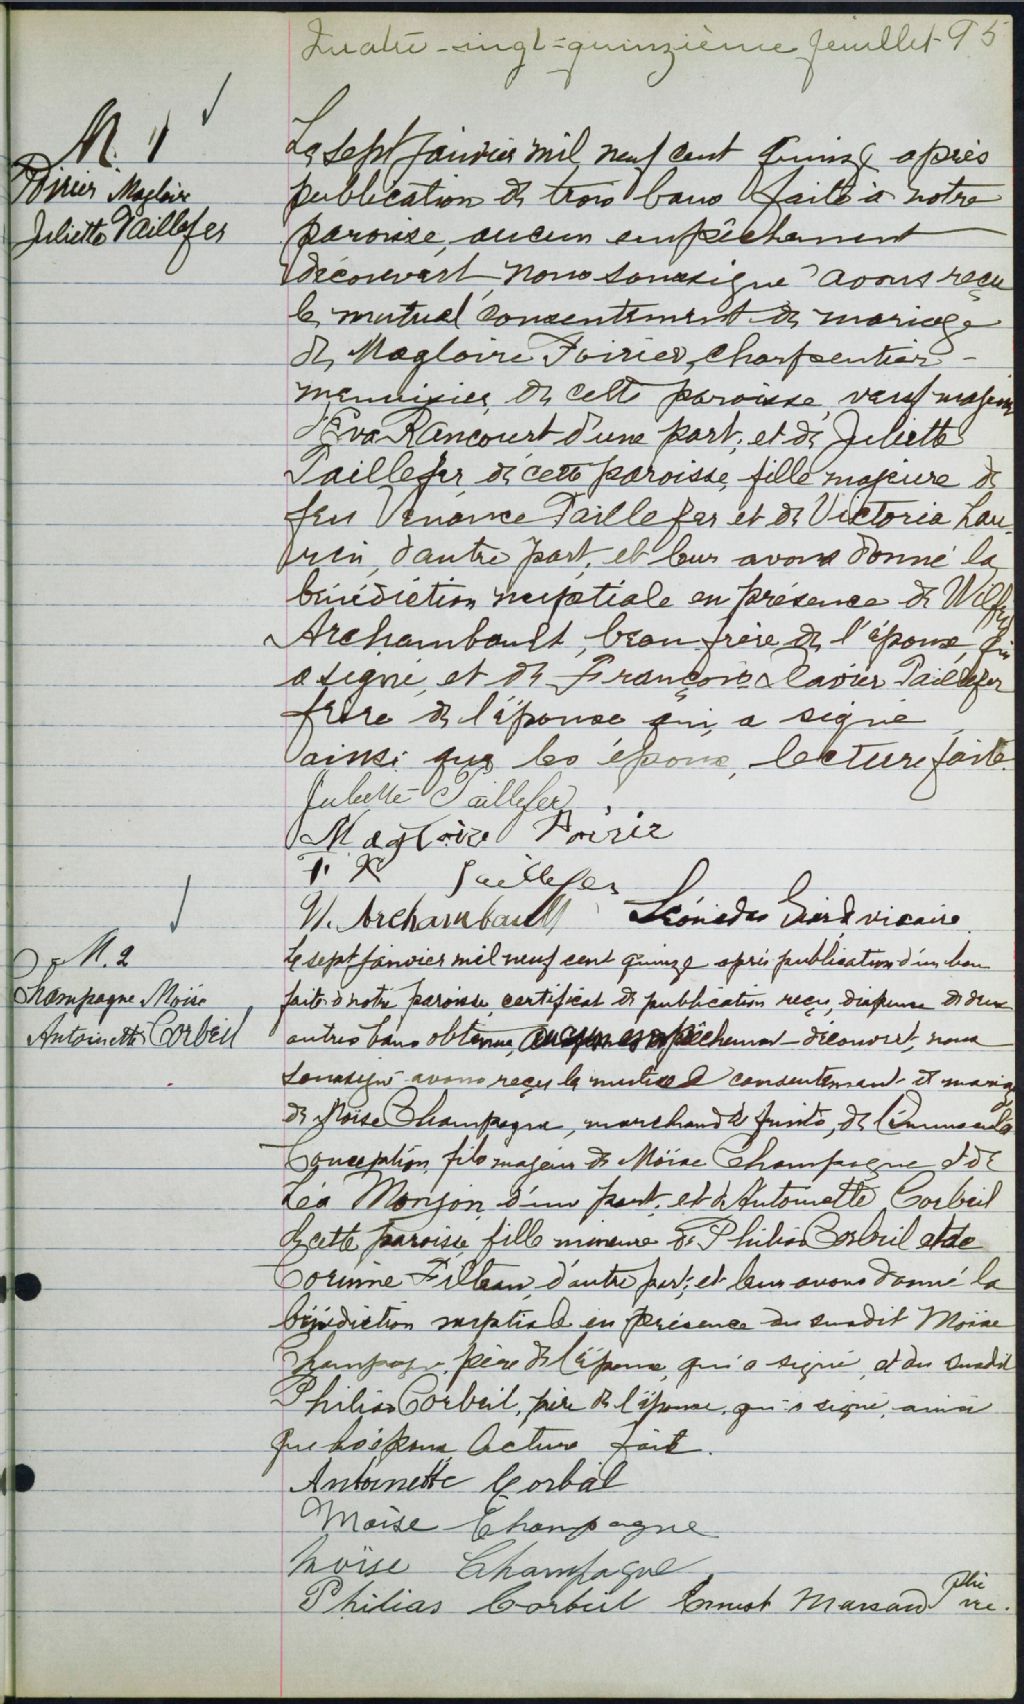 Quatre-vingt-quinzième feuillet 95
M. 1
Poirier Magloire
Juliette Taillefer
Le sept janvier mil neuf cent quinze après
publication de trois bans faite à notre
paroisse, aucun empêchement
découvert, nous soussigné avons reçu
le mutuel consentement de mariage
de Magloire Poirier, charpentier-
menuisier, de cette paroisse, veuf majeur
d'Eva Rancourt d'une part; et de Juliette
Taillefer, de cette paroisse, fille majeure de
feu Venance Taillefer et de Victoria Lau-
rin, d'autre part, et leur avons donné la
bénédiction nuptiale en présence de Wilfrid
Archambault, beau-frère de l'époux, qui
a signé, et de François Xavier Taillefer
frère de l'épouse qui a signé
ainsi que les époux, lecture faite.
Juliette Taillefer
Magloire Poirier
F. X. Taillefer
W. Archambault Léonidas Girard vicaire
M. 2
Champagne Moïse
Antoinette Corbeil
Le sept janvier mil neuf cent quinze après publication d'un ban
faite à notre paroisse, certificat de publication reçu, dispense de deux
autres bans obtenue, aucun empêchement découvert, nous
soussigné avons reçu le mutuel consentement de mariage
de Moïse Champagne, marchand de fruits, de l'Immaculée
Conception, fils majeur de Moïse Champagne et de
Léa Monjon, d'une part, et d'Antoinette Corbeil
de cette paroisse, fille mineure de Philias Corbeil et de
Corinne Filteau, d'autre part; et leur avons donné la
bénédiction nuptiale en présence du susdit Moïse
Champagne, père de l'époux, qui a signé, et du susdit
Philias Corbeil, père de l'épouse, qui a signé, ainsi
que les époux, lecture faite.
Antoinette Corbeil
Moïse Champagne
Moïse Champagne
Philias Corbeil Ernest ptre vic.